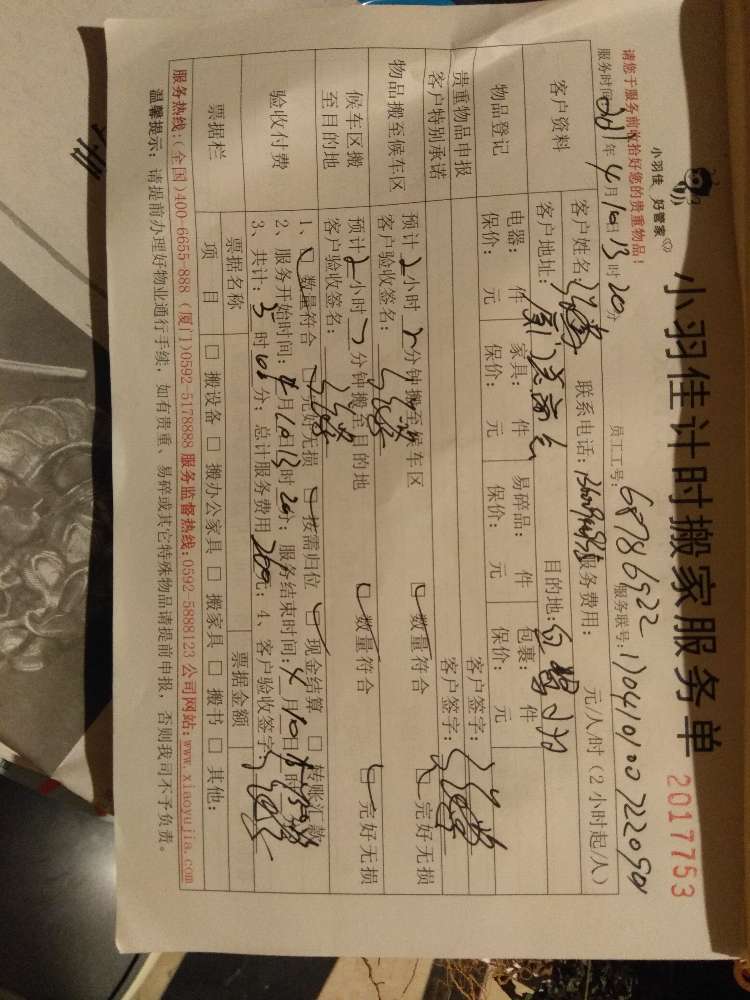 小羽佳 好管家
小羽佳计时搬家服务单
2017753
请您于服务前收拾好您的贵重物品！
员工工号：68786922 服务联号：
服务时间 年4月10日13时20分
客户资料
客户姓名： 联系电话： 服务费用： 元/人/时（2小时起/人）
客户地址： 目的地：
物品登记
电器： 件 家具： 件 易碎品： 件 包裹： 件
保价： 元 保价： 元 保价： 元 保价： 元
贵重物品申报
客户特别承诺
客户签字：
客户签字：
物品搬至候车区
预计2小时 分钟搬至候车区 数量符合 完好无损
客户验收签名：
候车区搬
至目的地
预计2小时 分钟搬至目的地 数量符合 完好无损
客户验收签名：
验收付费
1、 数量符合 完好无损 按需归位 现金结算 转账汇款
2、服务开始时间：4月10日13时20分；服务结束时间：4月10日 时
3、共计： 时 分；总计服务费用 元；4、客户验收签字：
票据栏
票据名称 票据金额
项 目 搬设备 搬办公家具 搬家具 搬书 其他：
服务热线：(全国)400-6655-888 (厦门)0592-5178888 服务监督热线：0592-5888123 公司网站：www.xiaoyujia.com
温馨提示：请提前办理好物业通行手续，如有贵重、易碎或其它特殊物品请提前申报，否则我司不予负责。